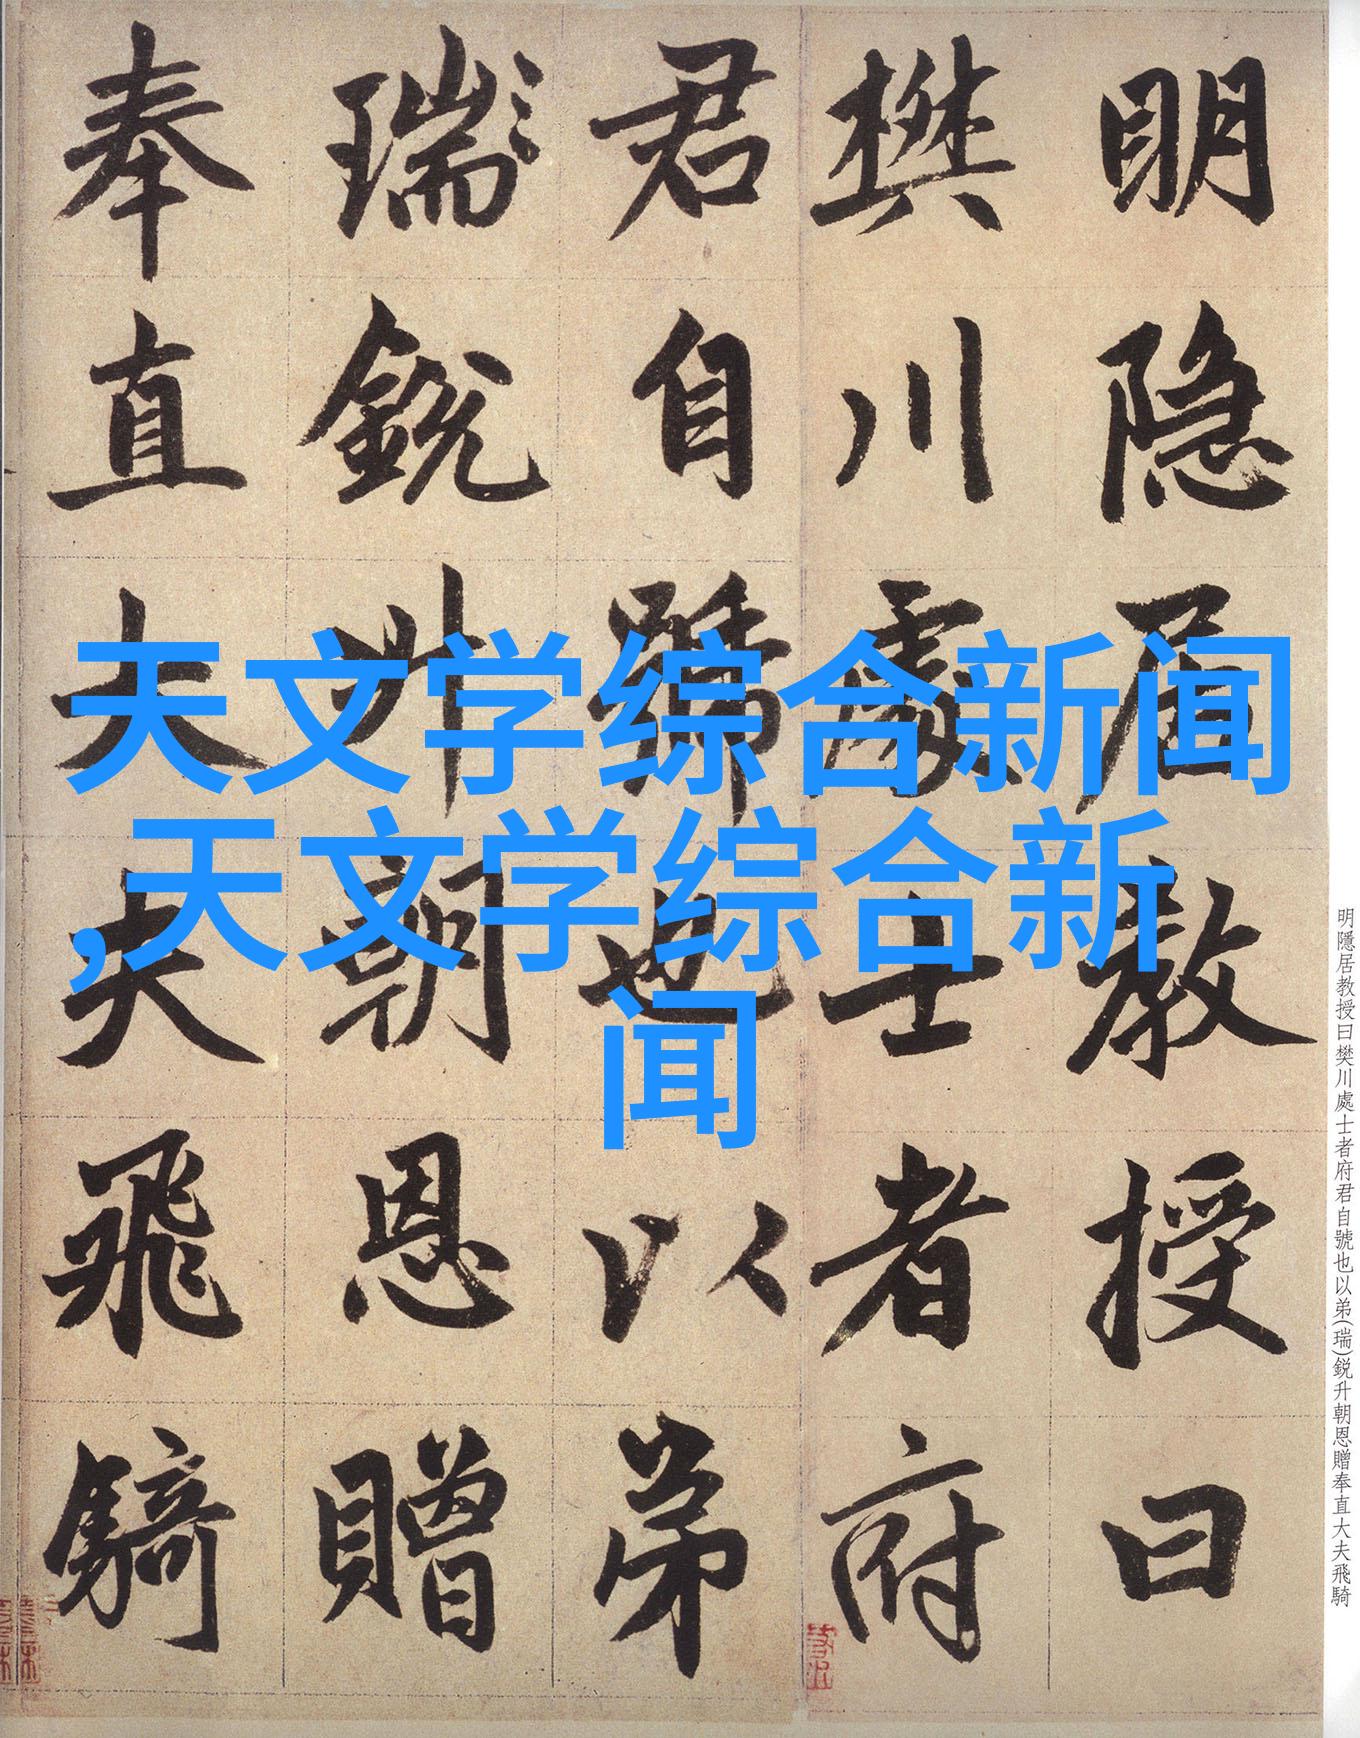 明隐居教授曰
樊川處士者府
君自號也以弟
瑞銳升朝恩贈
奉直大夫飛騎
天文学综合新闻
,天文学综合新
闻
明隱居教授曰樊川處士者府君自號也以弟(瑞)鋭升朝恩贈奉直大夫飛騎